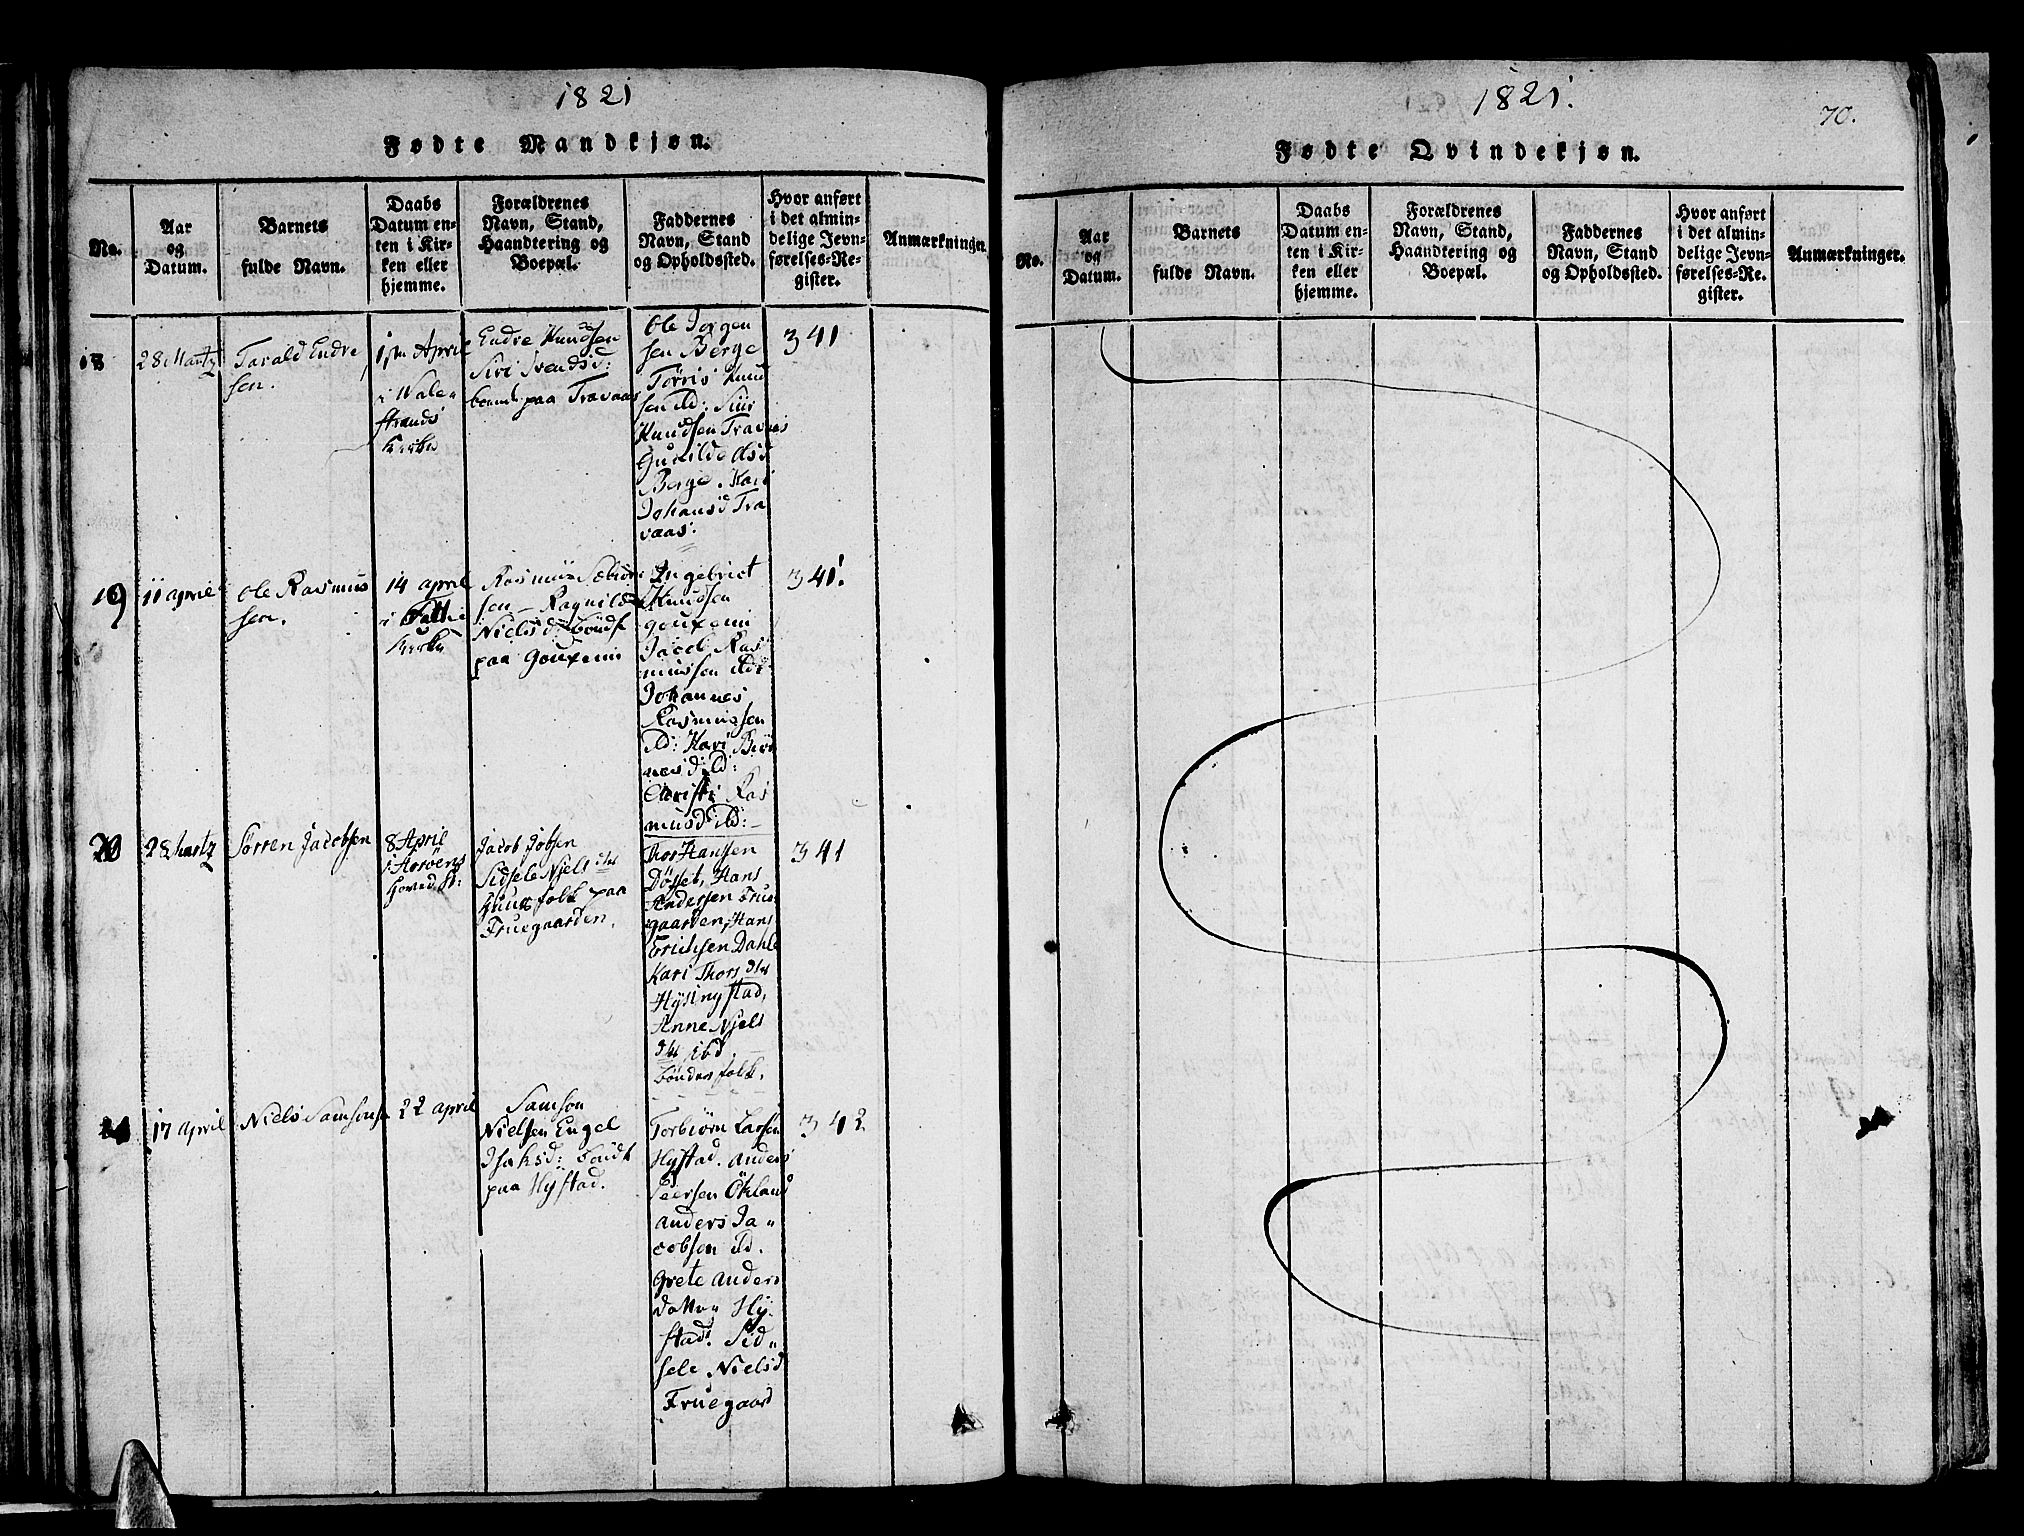 1821
Fødte Mandkjøn.
No.
Aar
og
Datum.
Barnets
fulde Navn.
Daabs
Datum en-
ten i Kir-
ken eller
hjemme.
Forældrenes
Navn, Stand,
Haandtering og
Boepæl.
Faddernes
Navn, Stand
og Opholdssted.
Hvor anført
i det almin-
delige Jevn-
førelses-Re-
gister.
Anmærkninger.
18
28 Martz
Tarald Endre
sen.
1ste April
i Wale-
strands
Kirke
Endre Knudsen
Siri Svendsd:
paa Travaas
Ole Jørgen
sen Berge
Tørris Knud
sen ibd: Siur
Knudsen Travaas
Gunilde Olsd
Berge. Kari
Johansd Tra
vaas.
341
19
11 april
Ole Rasmus
sen.
14 april
i
Kirke
Rasmus
sen Ragnilde
Nielsd:
paa
Ingebrict
Knudsen
Jacob Ras
mussen ibd:
Johannes
Rasmussen
ibd: Kari
ibd:
Christi Ras
musd ibd:
341.
20
28 Martz
Sørren Jacobsen
8 April
i
Hoved K:
Jacob Jobsen
Sidsele Njels dtr
Huusfolk paa
Fruegaarden.
Thor Hansen
Døsset, Hans
Andersen Frue
gaarden, Hans
Erichsen Dahle
Kari Thors dtr
Hysingstad,
Anne Njels
dtr ibd.
Bønder folk.
341
21
17 april
Niels Samsonsen
22 april
Samson
Nielsen Engel
Isaksd:
paa Hystad.
Torbiörn Larsen
Hystad. Anders
Peersen Ökland
Anders Ja-
cobsen ibd.
Grete Anders
datter Hy
stad. Sid-
sele Nielsd
Fruegaard
342
1821.
70.
Fødte Qvindekjøn.
No.
Aar
og
Datum.
Barnets
fulde Navn.
Daabs
Datum en-
ten i Kir-
ken eller
hjemme.
Forældrenes
Navn, Stand,
Haandtering og
Boepæl.
Faddernes
Navn, Stand
og Opholdssted.
Hvor anført
i det almin-
delige Jevn-
førelses-Re-
gister.
Anmærkninger.